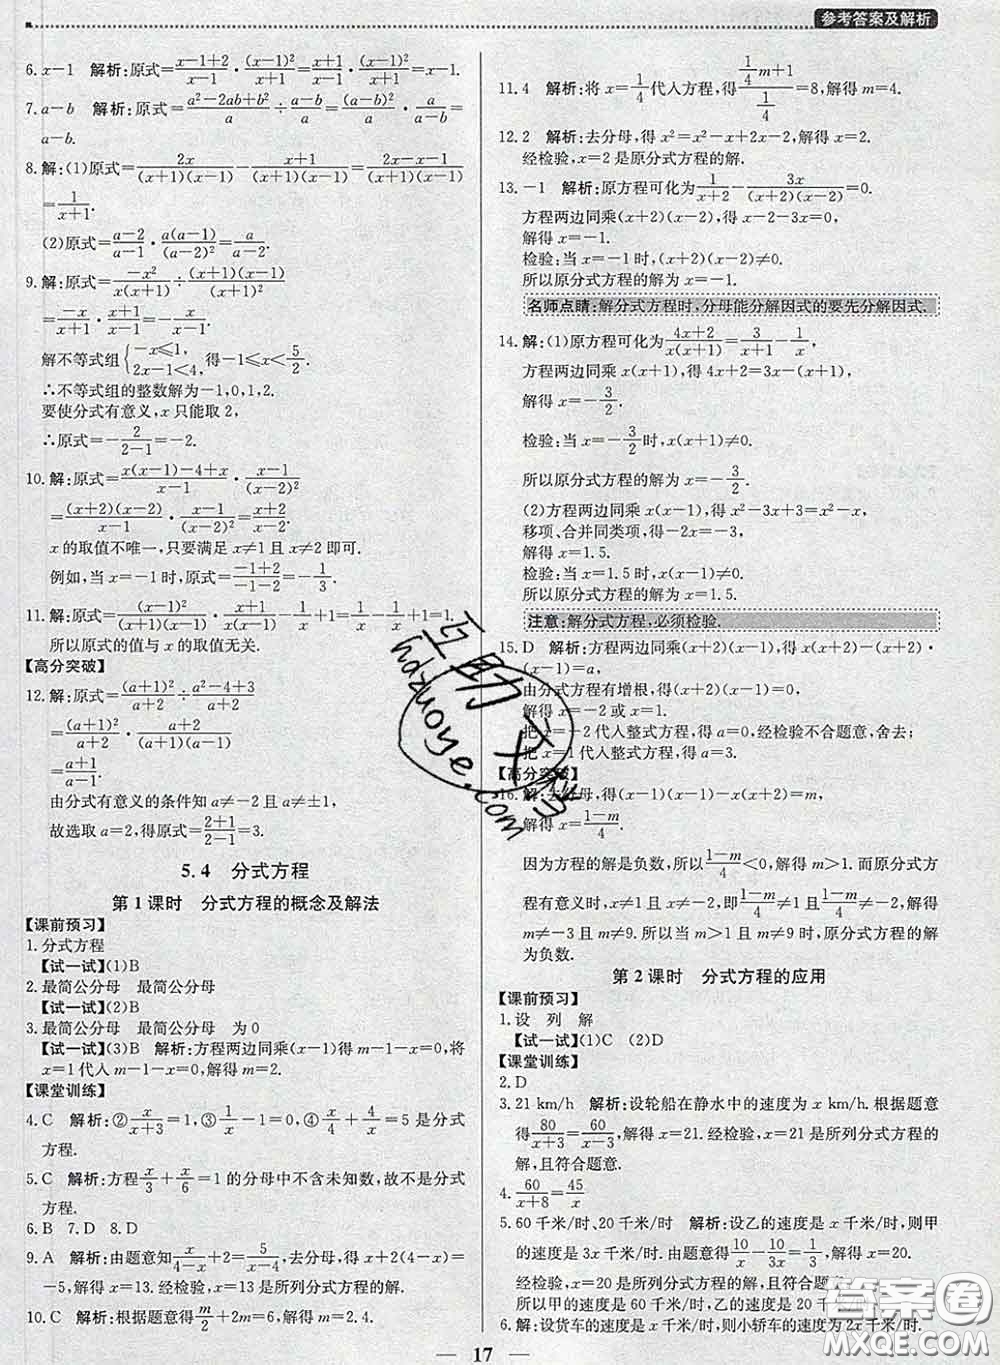 参考答案及解析
6. x−1 解析:原式=(x−1+2)/(x−1)·(x−1)²/(x+1)=(x+1)/(x−1)·(x−1)²/(x+1)=x−1.
7. a−b 解析:原式=(a²−2ab+b²)/a÷(a−b)/a=(a−b)²/a·a/(a−b)=
a−b.
8. 解:(1)原式=2x/((x+1)(x−1))−(x+1)/((x+1)(x−1))=(2x−x−1)/((x+1)(x−1))
=1/(x+1).
(2)原式=(a−2)/(a−1)·a(a−1)/(a−2)²=a/(a−2).
9. 解:原式=−x²/(x(x+1))÷(x+1)(x−1)/(x+1)²
=−x/(x+1)·(x+1)/(x−1)=−x/(x−1).
解不等式组{−x≤1, 2x−1<4, 得−1≤x<5/2.
∴不等式组的整数解为−1,0,1,2.
要使分式有意义,x只能取2,
∴原式=−2/(2−1)=−2.
10. 解:原式=(x(x−1)−4+x)/(x−1)·(x−1)/(x−2)²
=(x+2)(x−2)/(x−1)·(x−1)/(x−2)²=(x+2)/(x−2).
x的取值不唯一,只要满足x≠1且x≠2即可.
例如,当x=−1时,原式=(−1+2)/(−1−2)=−1/3.
11. 解:原式=(x−1)²/((x+1)(x−1))·(x+1)/(x(x−1))−1/x+1=1/x−1/x+1=1.
所以原式的值与x的取值无关.
【高分突破】
12. 解:原式=(a+1)²/(a+2)÷(a²−4+3)/(a+2)
=(a+1)²/(a+2)·(a+2)/((a+1)(a−1))
=(a+1)/(a−1).
由分式有意义的条件知a≠−2且a≠±1,
故选取a=2,得原式=(2+1)/(2−1)=3.
5.4 分式方程
第1课时 分式方程的概念及解法
【课前预习】
1. 分式方程
【试一试】(1)B
2. 最简公分母 最简公分母
【试一试】(2)B
3. 最简公分母 最简公分母 为0
【试一试】(3)B 解析:方程两边同乘(x−1)得m−1−x=0,将
x=1代入m−1−x=0,解得m=2.
【课堂训练】
4. C 解析:②x/(x+3)=1,③1/x−1=0,④4/x+x/4=5是分式
方程.
5. C 解析:方程x/3+x/6=1的分母中不含未知数,故不是分式
方程.
6. B 7. D 8. D
9. A 解析:由题意知x/(4−x)+2=5/(x−4),去分母,得x+2(4−x)=
−5,解得x=13.经检验,x=13是所列分式方程的解.
10. C 解析:根据题意得m/2+2m=2.4.
11. 4 解析:将x=1/4代入方程,得(1/4m+1)/(1/4)=8,解得m=4.
12. 2 解析:去分母,得x²=x²−x+2x−2,解得x=2.
经检验,x=2是原分式方程的解.
13. −1 解析:原方程可化为1/(x+2)−3x/((x+2)(x−2))=0.
方程两边同乘(x+2)(x−2),得x−2−3x=0,
解得x=−1.
检验:当x=−1时,(x+2)(x−2)≠0.
所以原分式方程的解为x=−1.
名师点睛:解分式方程时,分母能分解因式的要先分解因式.
14. 解:(1)原方程可化为(4x+2)/(x(x+1))=3/(x+1)−1/x,
方程两边同乘x(x+1),得4x+2=3x−(x+1),
解得x=−3/2.
检验:当x=−3/2时,x(x+1)≠0.
所以原分式方程的解为x=−3/2.
(2)方程两边同乘x(x−1),得x²−3x+3=x²−x,
移项、合并同类项,得−2x=−3,
解得x=1.5.
检验:当x=1.5时,x(x−1)≠0.
所以原分式方程的解为x=1.5.
注意:解分式方程,必须检验.
15. D 解析:方程两边同乘(x+2)(x−1),得x(x+2)−(x+2)·
(x−1)=a,
由分式方程有增根,得(x+2)(x−1)=0,
解得x=−2或x=1.
把x=−2代入整式方程,得a=0,经检验不合题意,舍去;
把x=1代入整式方程,得a=3.
【高分突破】
16. 解:去分母,得(x−1)(x−1)−x(x+2)=m,
解得x=(1−m)/4.
因为方程的解是负数,所以(1−m)/4<0,解得m>1.而原分式方
程有意义时,x≠1且x≠−2,所以(1−m)/4≠1且(1−m)/4≠−2,解得
m≠−3且m≠9.所以当m>1且m≠9时,原分式方程的解
为负数.
第2课时 分式方程的应用
【课前预习】
1. 设 列 解
【试一试】(1)C (2)D
【课堂训练】
2. D
3. 21 km/h 解析:设轮船在静水中的速度为x km/h.根据题意
得80/(x+3)=60/(x−3),解得x=21.经检验,x=21是所列分式方程的
解,且符合题意.
4. 60/(x+8)=45/x
5. 60千米/时、20千米/时 解析:设乙的速度是x千米/时,则甲
的速度是3x千米/时.由题意得10/x−10/3x=1/3,解得x=20.
经检验,x=20是所列分式方程的解,且符合题意.
所以甲的速度是60千米/时,乙的速度是20千米/时.
6. 解:设货车的速度是x千米/时,则小轿车的速度是
17
互助文库
hdzuoye.com
答案圈
MXQE.COM